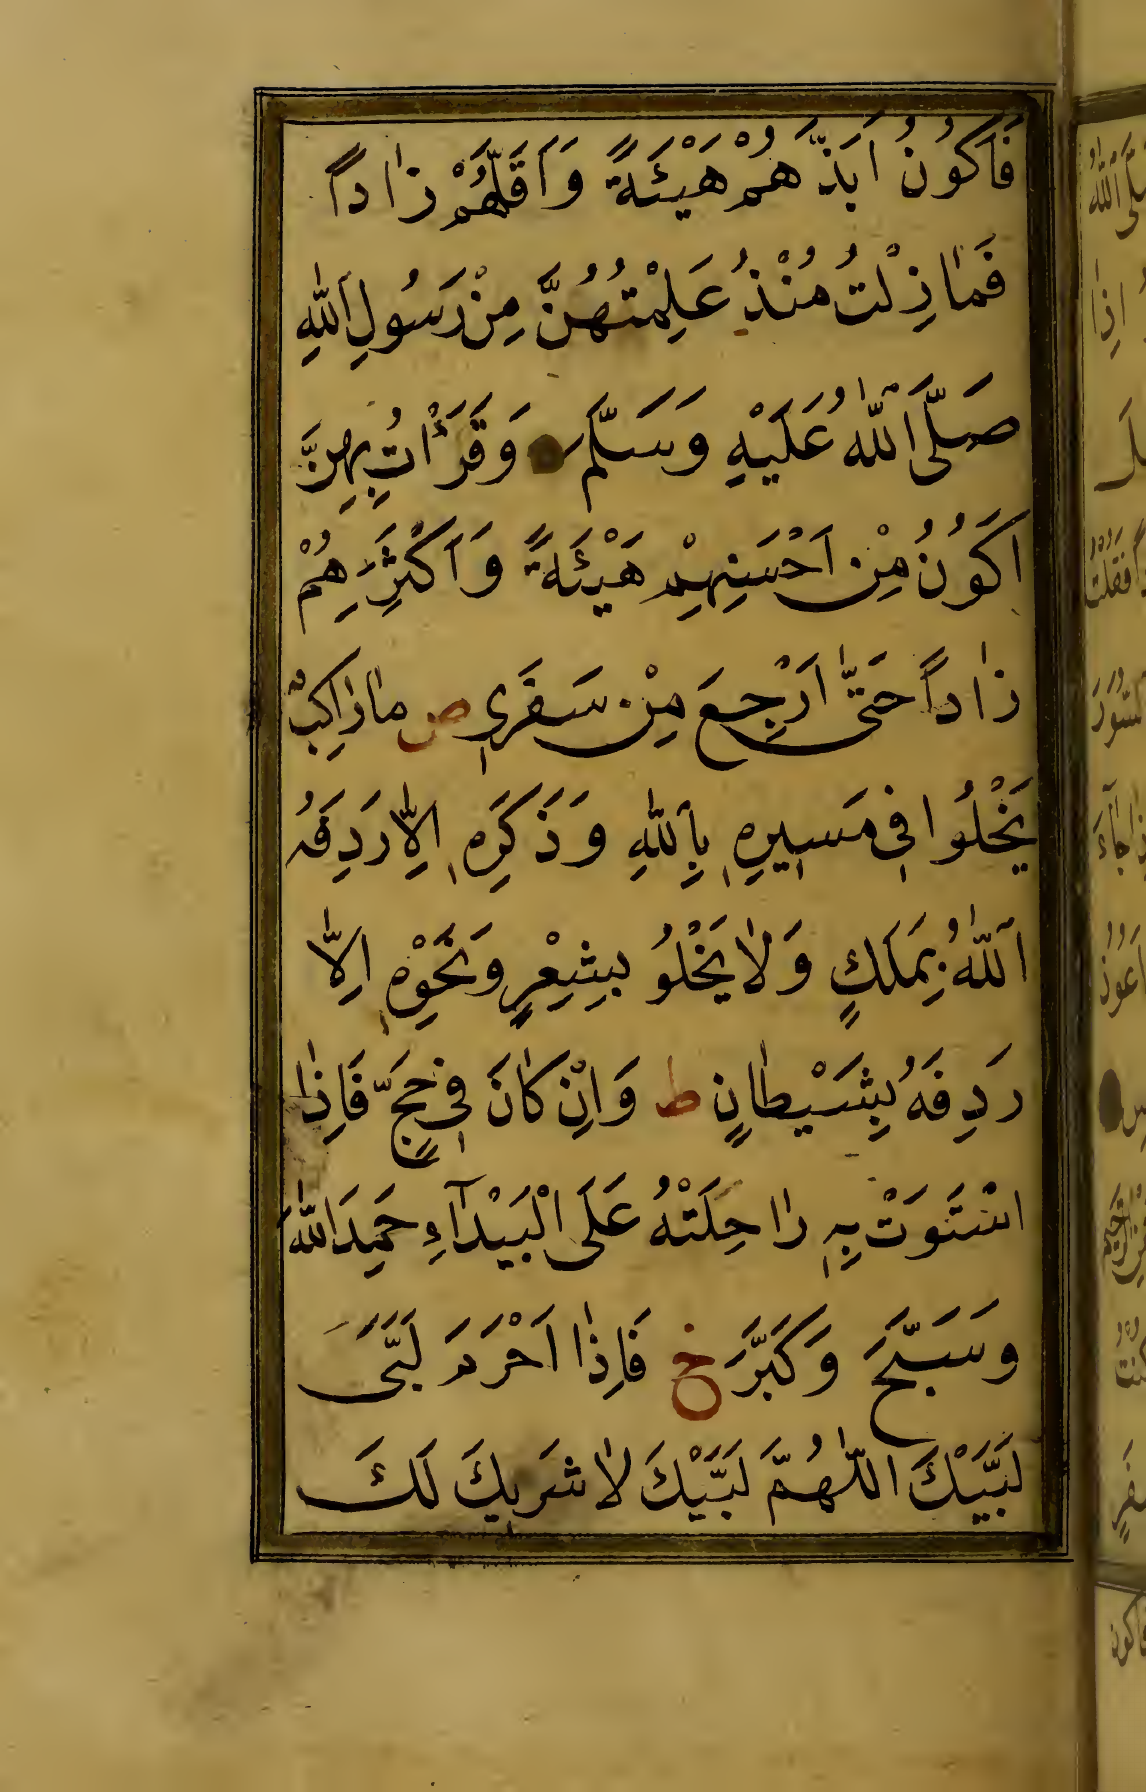 فَاَكُونُ اَبَذَّهُمْ هَيْئَةً وَاَقَلَّهُمْ زَاداً
فَمَا زِلْتُ مُنْذُ عَلِمْتُهُنَّ مِنْ رَسُولِ اللهِ
صَلَّى اللهُ عَلَيْهِ وَسَلَّمَ وَقَرَأْتُ بِهِنَّ
اَكُونُ مِنْ اَحْسَنِهِمْ هَيْئَةً وَاَكْثَرِهِمْ
زَاداً حَتَّى اَرْجِعَ مِنْ سَفَرِي ص مَا رَاكِبٌ
يَخْلُوا فِي مَسِيرِهِ بِاللهِ وَذَكَرَهِ اِلَّا رَدِفَهُ
اَللهُ بِمَلَكٍ وَلَا يَخْلُو بِشِعْرٍ وَنَحْوِهِ اِلَّا
رَدِفَهُ بِشَيْطَانٍ ط وَاِنْ كَانَ فِي حَجٍّ فَاِذَا
اسْتَوَتْ بِهِ رَاحِلَتُهُ عَلَى الْبَيْدَآءِ حَمِدَ اللهَ
وَسَبَّحَ وَكَبَّرَ خ فَاِذَا اَحْرَمَ لَبَّى
لَبَّيْكَ اللَّهُمَّ لَبَّيْكَ لَا شَرِيكَ لَكَ